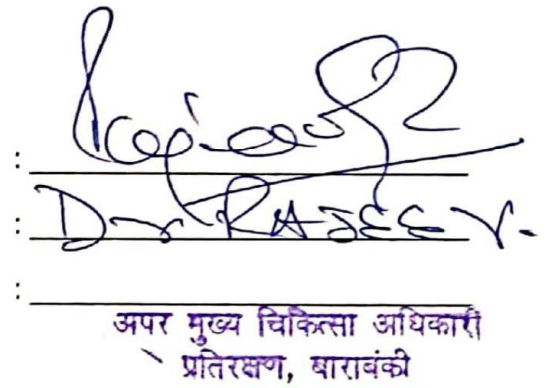 :
: Dr RAJEEV.
:
अपर मुख्य चिकित्सा अधिकारी
प्रतिरक्षण, बाराबंकी